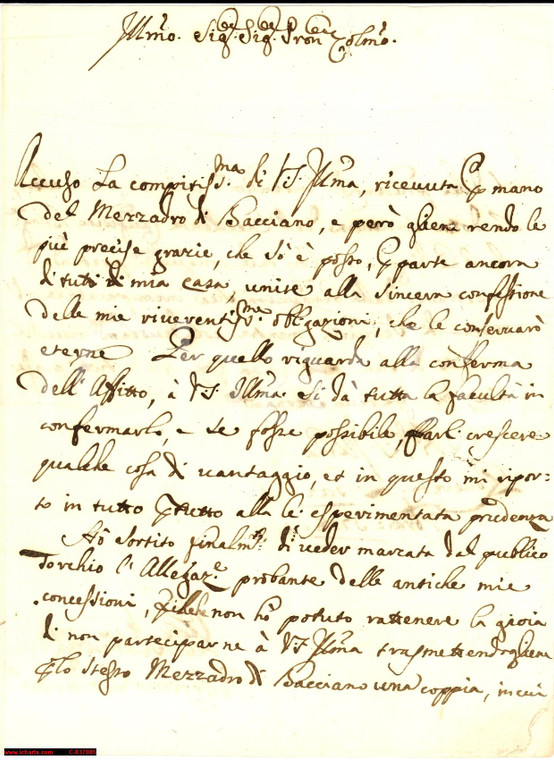 Illmo. Sigre. Sigre. Pron Colmo.
Accuso la compitissma. di VS. Illma, ricevuta p mano
del Mezzadro di Bacciano, e però gliene rendo le
più precise grazie, che sò e posso, p parte ancora
di tutti di mia casa, unite alla sincera confessione
delle mie riverentissme. obligazioni, che le conservarò
eterne Per quello riguarda alla conferma
dell' Affitto, à VS. Illma. si dà tutta la facultà in
confermarlo, e se fosse possibile, farli crescere
qualche cosa di vantaggio, et in questo mi ripor-
to in tutto p tutto alla le esperimentata prudenza
Hò sortito finalmte. di veder marcata dal publico
Torchio l' Allegaze. probante delle antiche mie
concessioni, non hò potuto rattenere la gioia
di non participarne à VS. Illma trasmettendogliene
p lo stesso Mezzadro di Bacciano una coppia, in cui
www.icharta.com C-037885